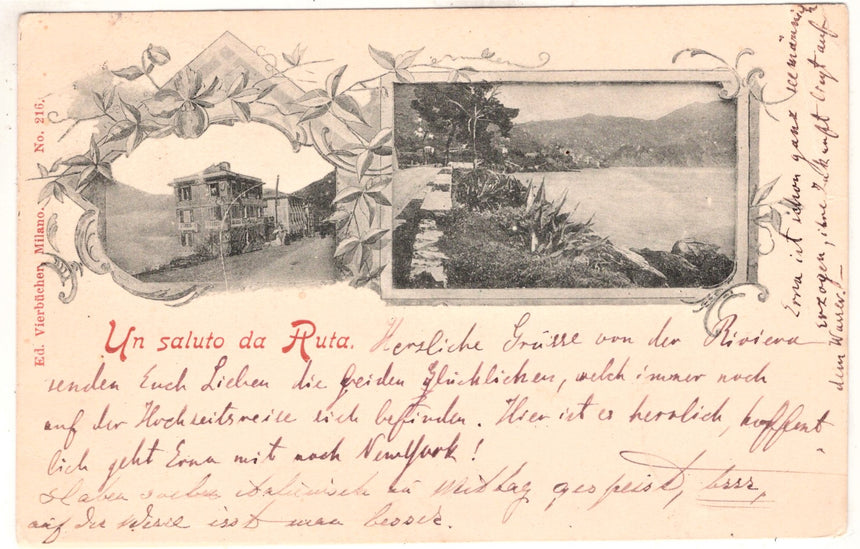 Ed. Vierbücher, Milano. No. 216.
Un saluto da Ruta.
Herzliche Grüsse von der Riviera
senden Euch Lieben die beiden Glücklichen, welch immer noch
auf der Hochzeitsreise sich befinden. Hier ist es herrlich, hoffent
lich geht Erna mit nach NewYork!
Haben soeben italienisch zu Mittag gespeist, brrr,
auf der Wiese isst man besser.
Erna ist schon ganz seemännisch
erzogen, ihre Zukunft liegt auf
dem Wasser.